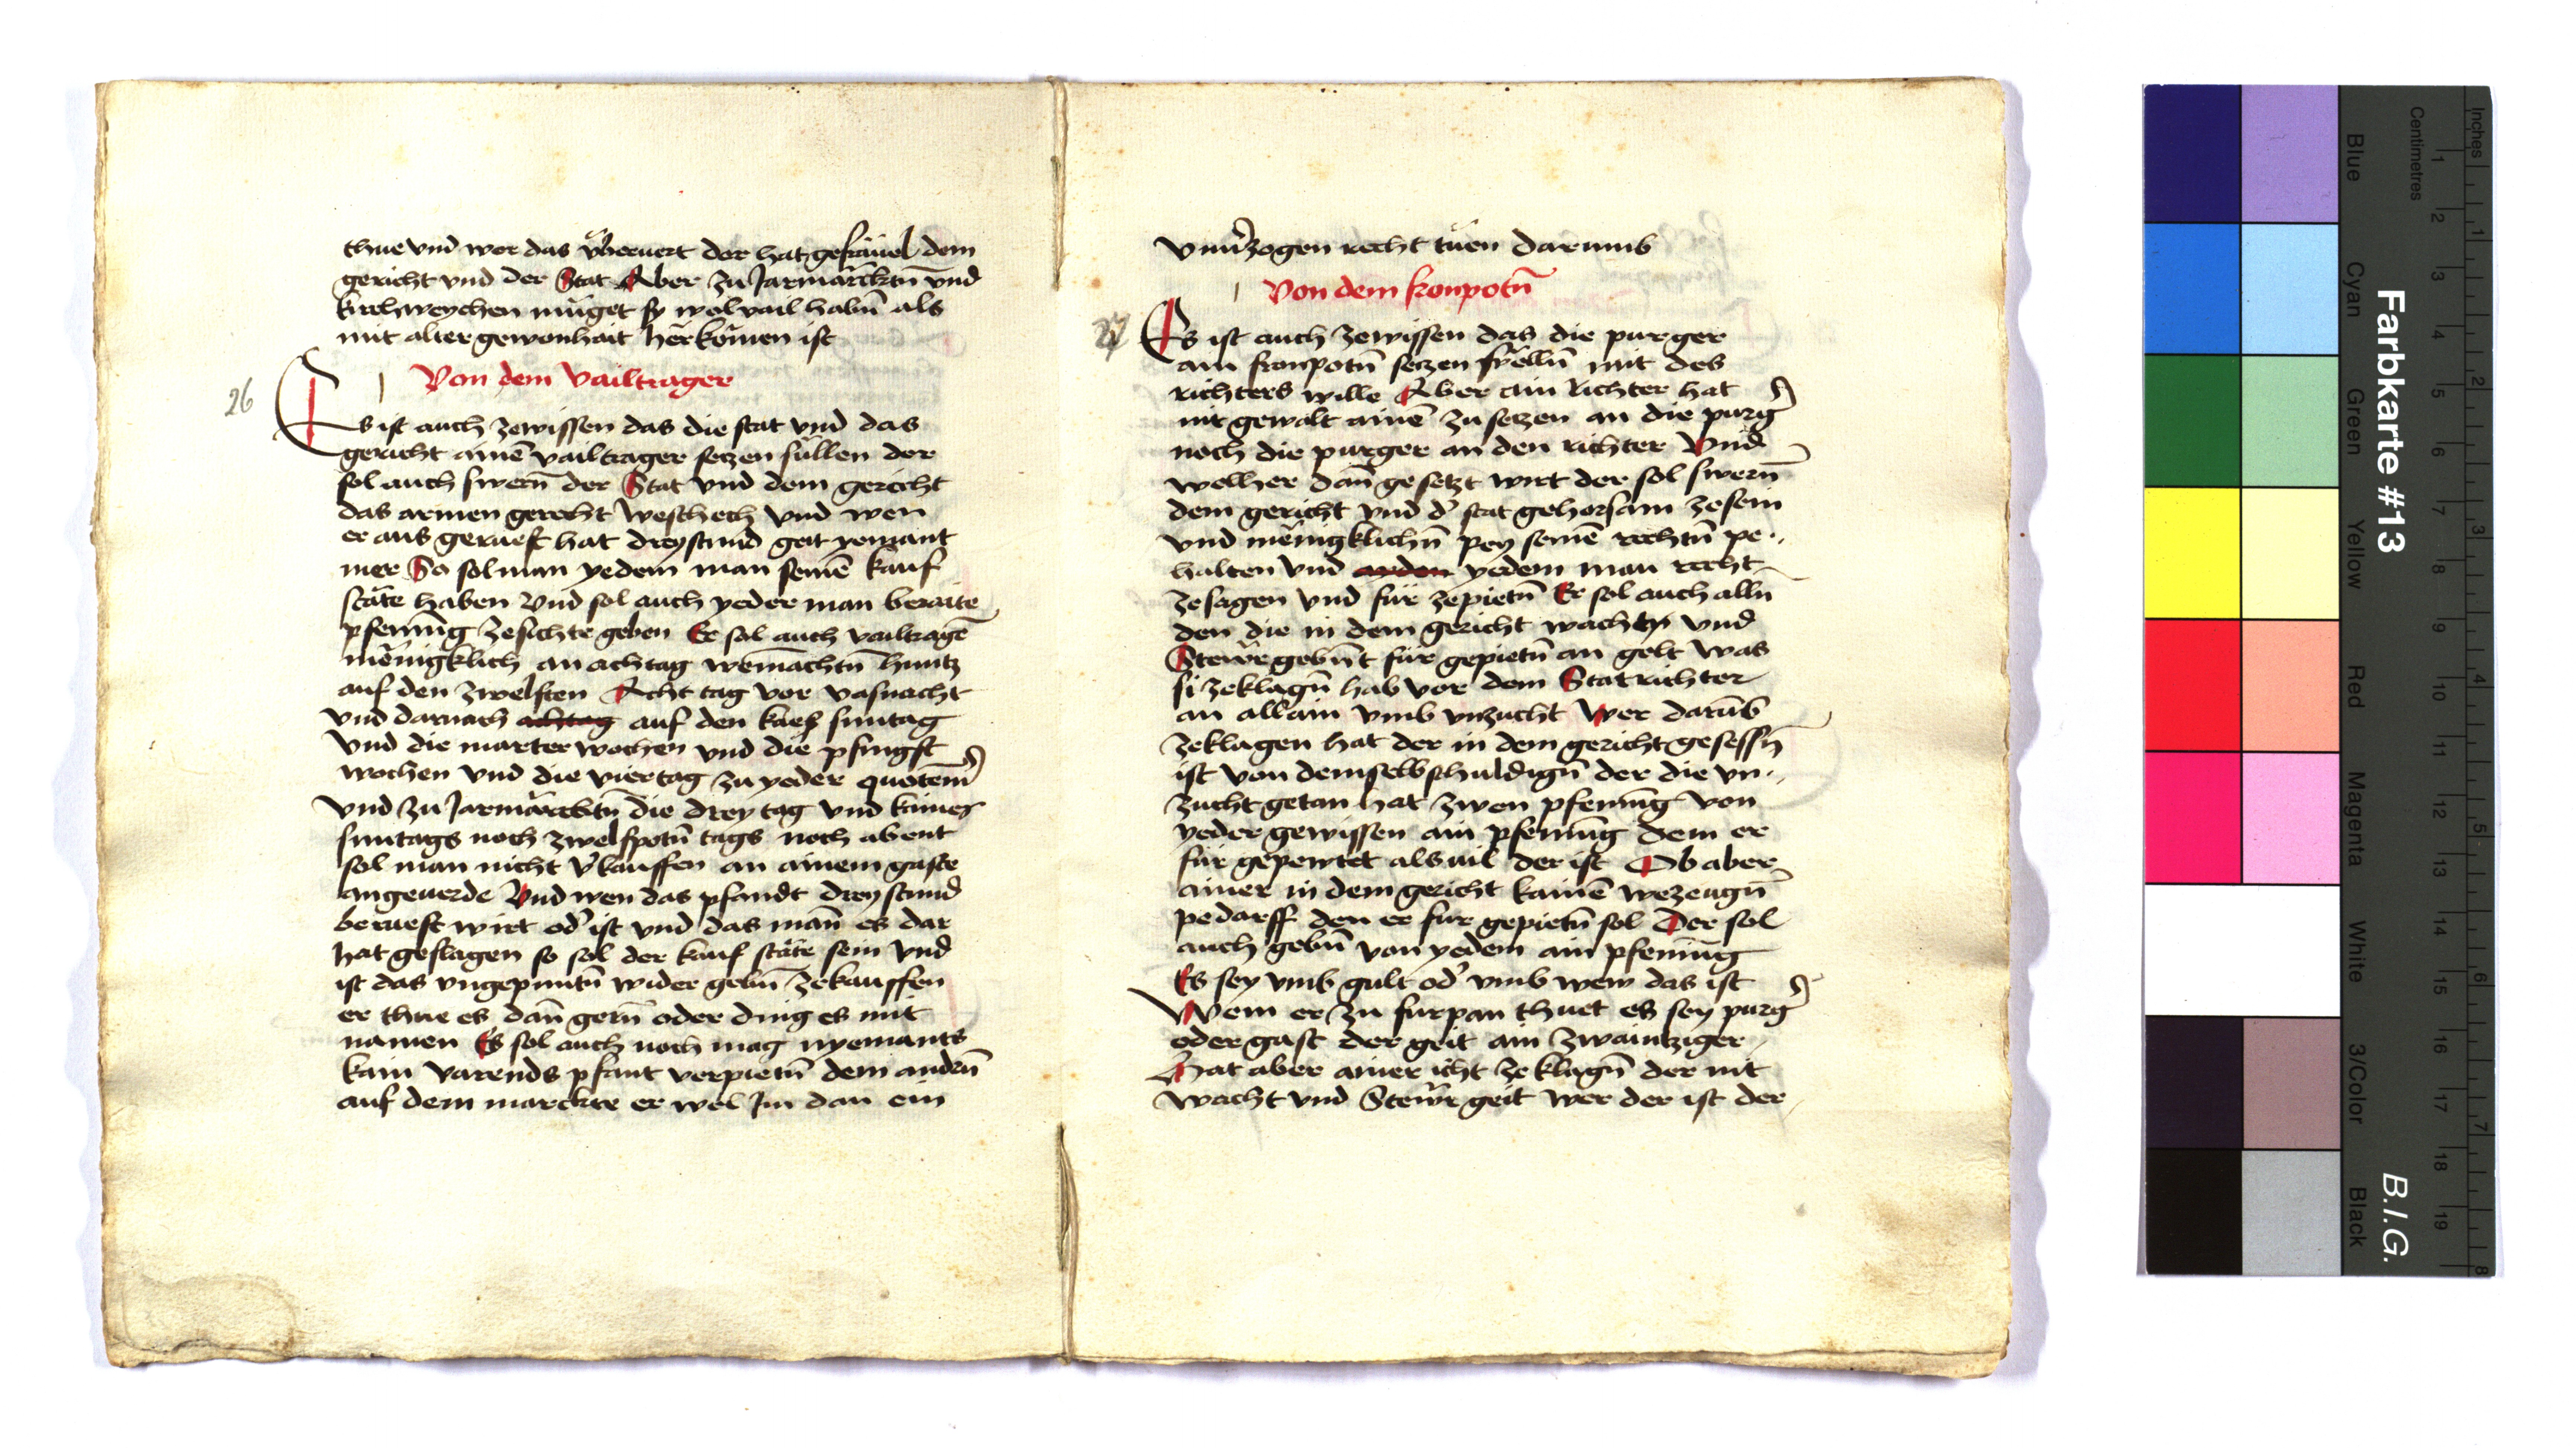 thue vnd wer das vͤberuert der hat gefräuel dem
gericht vnd der Stat Aber zu Jarmärcktn̄ vnd
kirchweychen müget sy wol vail habn̄ als
mit alter gewonhait herkomen ist
Von dem vailtrager
26
Es ist auch zewissen das die stat vnd das
gericht ainē vailtrager setzen süllen der
sol auch swern̄ der Stat vnd dem gericht
das armen gerecht weschech vnd wen
er aus gerueft hat dreystund geit yemant
mer So sol man yedem man seinē kauf
stäte haben Vnd sol auch yeder man beraite
pfenning zesichte geben Er sol auch vailtragē
mēnigklich an achtag weinachtn̄ huntz
auf den zwelften Acht tag vor vasnacht
vnd darnach achtag auf den kaes suntag
vnd die marter wochen vnd die pfingst
wochen vnd die viertag zu yeder quotem̄
vnd zu Jarmärcktn̄ die drey tag vnd kaines
suntags noch zwelfpotn̄ tags noch abent
sol man nicht v̓kauffen an ainem gaste
angeuerde Vnd wen das pfandt drey stund
berueft wirt od̓ ist vnd das man̄ es dar
hat geslagen so sol der kauf stäte sein vnd
ist das vngepuntn̄ wider gebn̄ zekauffen
er thue es dan̄ gern̄ oder ding es mit
namen Es sol auch noch mag nyemants
kain varends pfant verpietn̄ dem andrn̄
auf dem marckte er wel Im dan ein
vnu̓zogen recht tuen darumb
Von dem fronpotn̄
27
Es ist auch zewissen das die purger
ain fronpotn̄ setzen sülln̄ mit des
richters wille Aber ain Richter hat
nit gewalt ainē zu setzen an die purg̓
noch die purger an den richter Vnd
welher dan̄ gesetzt wirt der sol swern̄
dem gericht vnd d̓ stat gehorsam zesein
vnd mēnigklichn̄ pey seinē rechtn̄ pe..
halten vnd yedem man recht
zesagen vnd für zepietn̄ Er sol auch alln̄
den die in dem gericht wachtn̄ vnd
Stewr gebn̄t für gepietn̄ an gelt was
si zeklagn̄ hab vor dem Statrichter
an allain vmb vnzucht Wer darūb
zeklagen hat der in dem gericht gesessn̄
ist von demselb schuldign̄ der die vn..
zucht getan hat zwen pfenning von
yeder gewissen ain pfenning dem er
für gepewtet als uil der ist Ob aber
ainer in dem gericht kainē wezeugn̄
pedarff den er fur gepietn̄ sol Der sol
auch gebn̄ von yedem ain pfenning
Es sey vmb gult od̓ vmb wew das ist
Wem er zu furpan thuet es sey purg̓
oder gast der geit ain zwaintziger
Hat aber ainer icht zeklagn̄ der nit
wacht vnd Stewr geit wer der ist der
Farbkarte #13
B.I.G.
Inches
1 2 3 4 5 6 7 8
Centimetres
1 2 3 4 5 6 7 8 9 10 11 12 13 14 15 16 17 18 19
Blue
Cyan
Green
Yellow
Red
Magenta
White
3/Color
Black